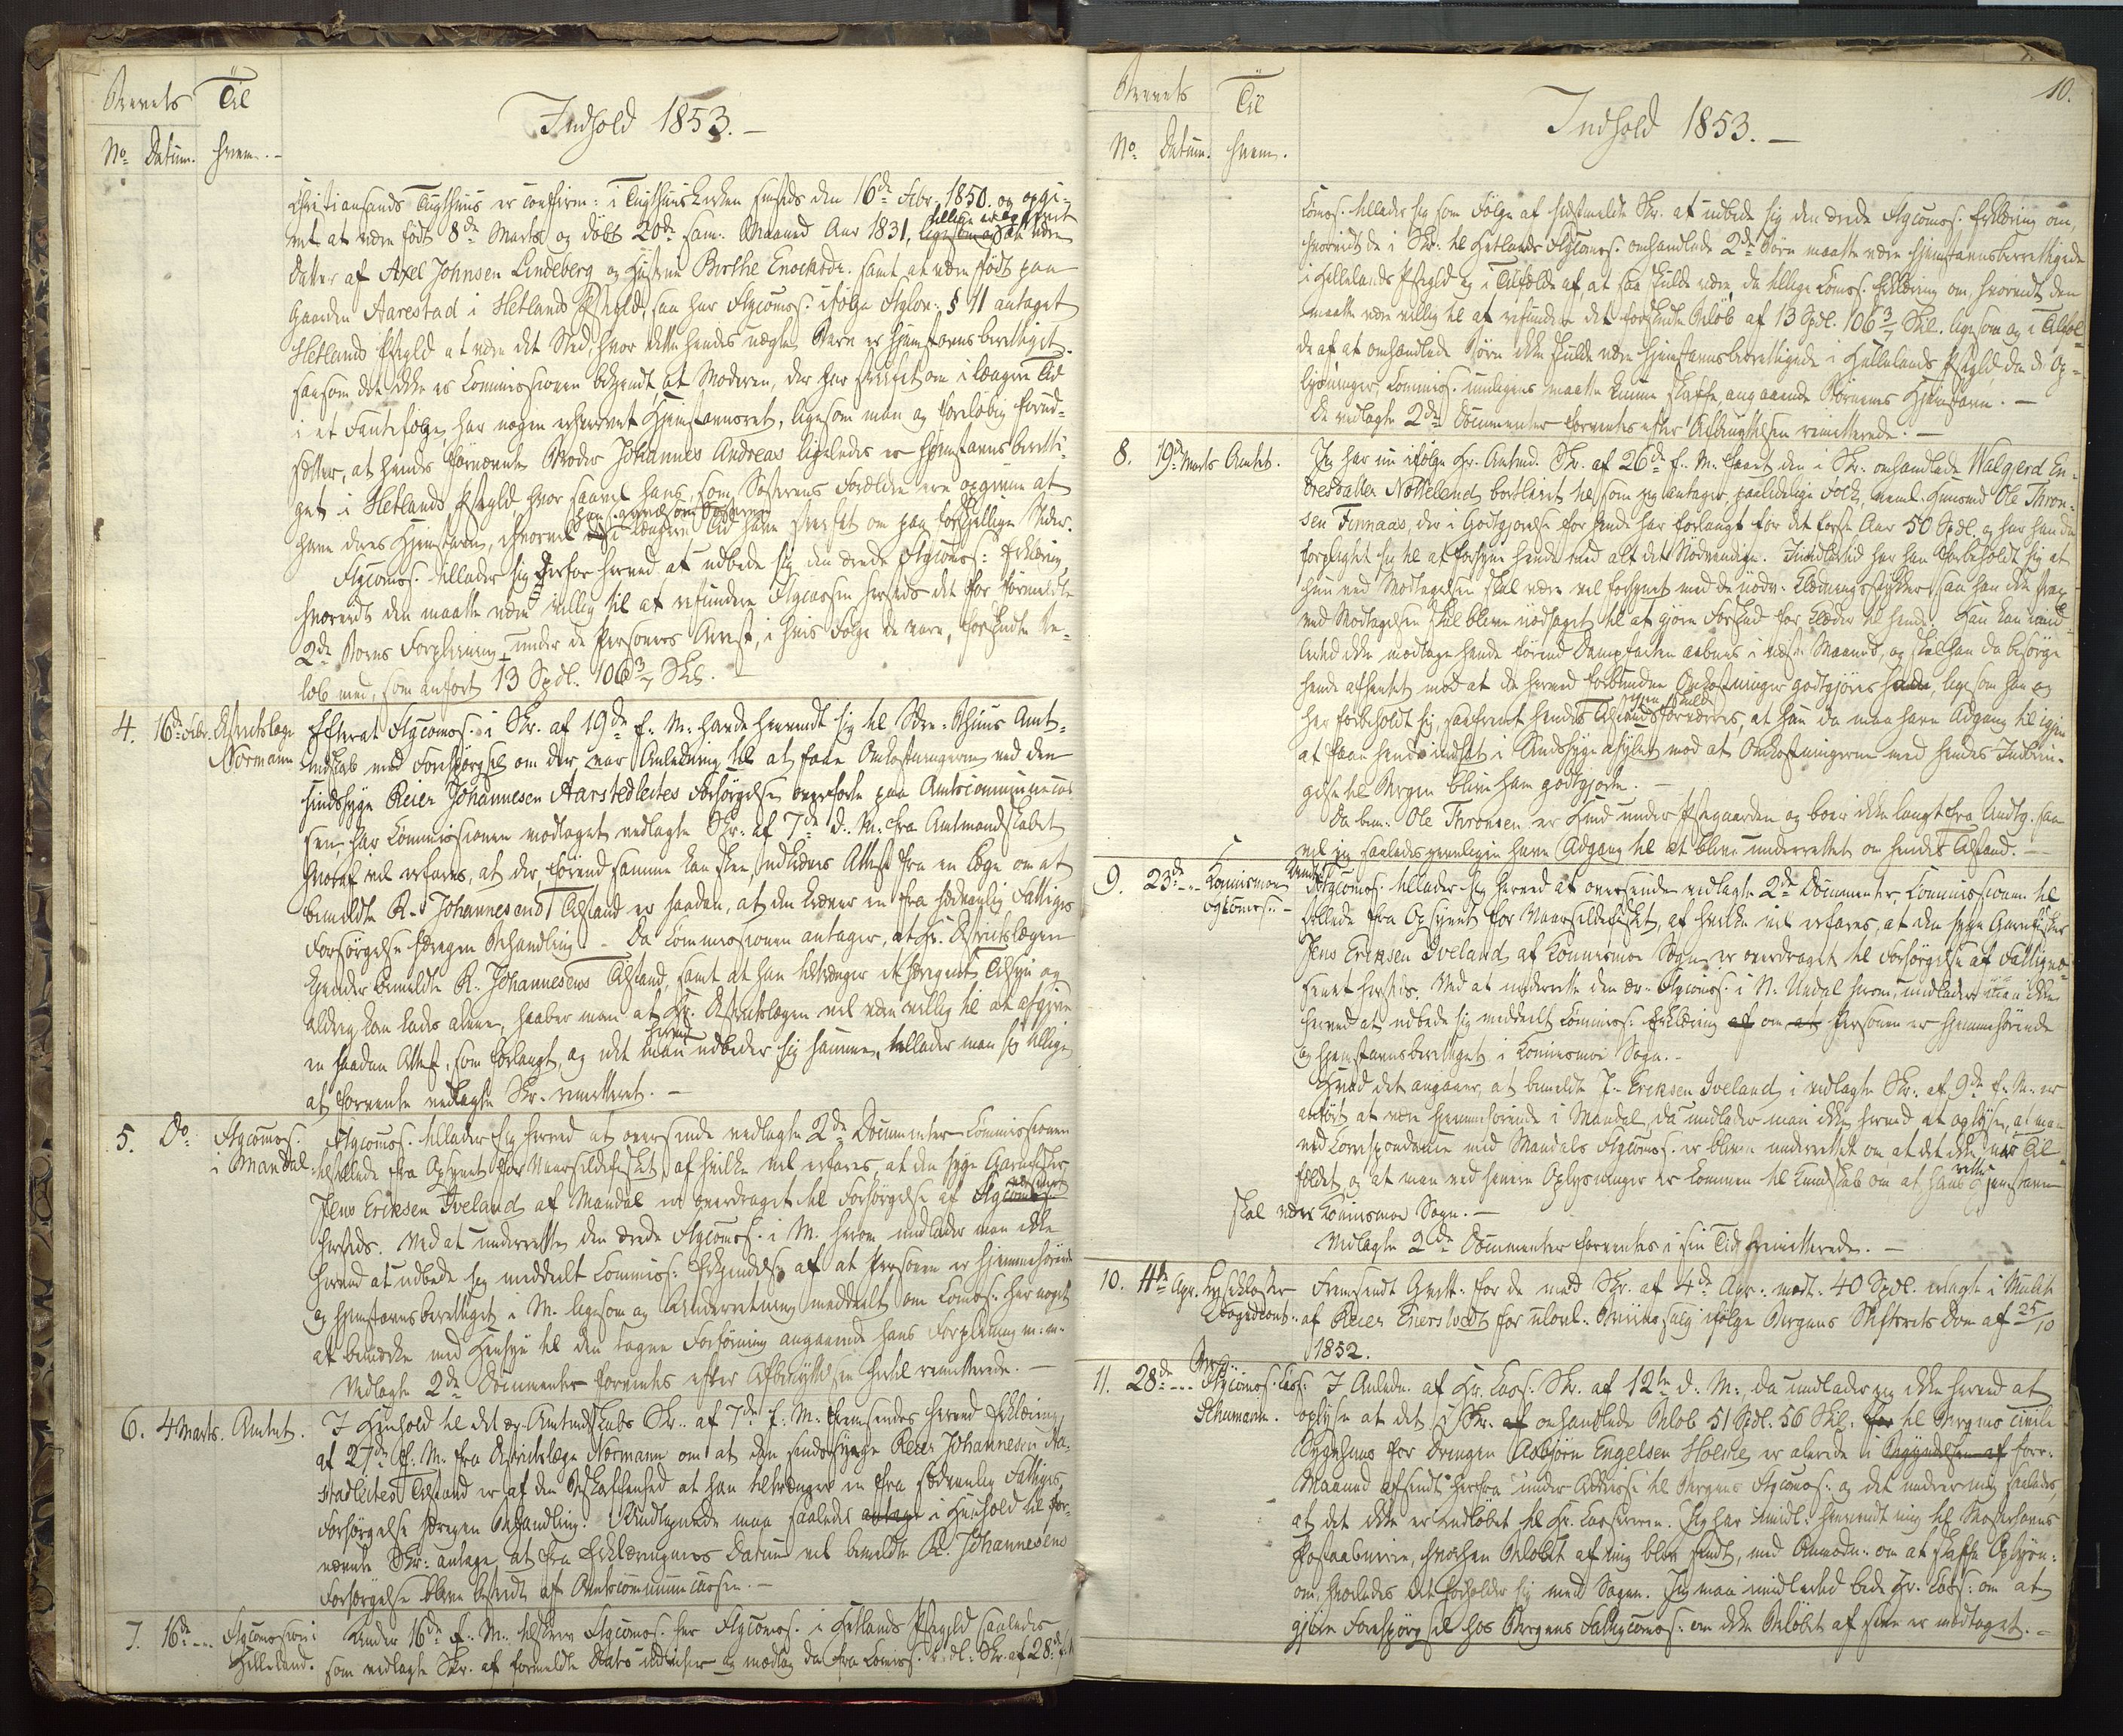 Brevets
Til
Indhold 1853.-
No Datum.
hvem.-
Christiansands Tugthuus er confirm: i Tugthuuskirken sensteds den 16de Febr. 1850. og opgi-
vet at være født 8de Marts og døbt 20de sam. Maaned Aar 1831, tillige at være
Datter af Axel Johnsen Lindeberg og Hustrue Berthe Enochsdr. samt at være født paa
Gaarden Aarestad i Hetlands Præstegjeld, saa har Ftgcomos: ifølge Ftglov: § 11 antaget
Hetlands Præstegjeld at være det Sted, hvor dette hendes uægte Barn er hjemstavnsberettiget.
saasom det ikke er Commissionen bekjendt, at Moderen, der har streifet om i længere Tid
i et Fantefølge, har nogen erhvervet Hjemstavnsret, ligesom man og foreløbig forud-
sætter, at hendes førnævnte Broder Johannes Andreas ligeledes er hjemstavnsberetti-
get i Hetlands Præstegjeld, hvor saavel hans, som Søsterens Forældre ere opgivne at
have deres Hjemstavn, hvorvel i længere Tid have streifet om paa forskjellige Steder.
Ftgcomos. tillader sig derfor herved at udbede sig den ærede Ftgcomos: Erklæring,
hvorvidt den maatte være villig til at refundere Ftgcassen hersteds det for førmeldte
2de Børns Forpleining under de Personers Arrest, i hvis Følge de vare, forskudte Be-
løb med, som anført 13 Spdl. 106 3/7 Skl.
4. 16de Febr. Distrlctslæge
Normann
Efterat Ftgcomos. i Skr. af 19de f. M. havde henvendt sig til Sdre. Bhuus Amt-
mdskab med Forespørgsel om der var Anledning til at faae Omkostningerne ved den
sindssyge Reier Johannesen Aarstedleites Forsørgelse overførte paa Amtscommunecas-
sen, har Commissionen modtaget vedlagte Skr. af 7de d. M. fra Amtmandskabet
hvoraf vil erfares, at der, førend samme kan skee, indkræves Attest fra en Læge om at
bemeldte R. Johannesens Tilstand er saadan, at den kræver en fra sædvanlig Fattiges
Forsørgelse særegen Behandling. - Da Commissionen antager, at Hr. Districtslægen
kjender bemeldte R. Johannesens Tilstand, samt at han tiltrænger et særegent Tilsyn og
aldrig kan lades alene, haaber man at Hr. Districtslægen vil være villig til at afgive
en saadan Attest, som forlangt, og idet man herved udbeder sig samme, tillader man sig tillige
at forvente vedlagte Skr. remitteret. -
5. Do
Ftgcomos.
i Mandal.
Ftgcomos. tillader sig herved at oversende vedlagte 2de Documenter Commissionen
tilstillede fra Opsynet for Vaarsildefisket, af hvilke vil erfares, at den syge Garnfisker
Jens Ericksen Iveland af Mandal er overdraget til Forsørgelse af Ftgvæsenet
hersteds. Ved at underrette den ærede Ftgcomos. i M. herom undlader man ikke
herved at udbede sig meddeelt Commiss: Erkjendelse af at Personen er hjemmehørende
og hjemstavnsberettiget i M. ligesom og Underretning meddeelt om Comos. har noget
at bemærke med Hensyn til den tagne Forføining angaaende hans Forpleining m.m.
Vedlagte 2de Documenter forventes efter Afbenyttelsen hertil remitterede. -
6. 4 Marts. Amtet.
I Henhold til det ær. Amtmdskabs Skr. af 7de f. M. fremsendes herved Erklæring
af 27de f. M. fra Districtslæge Normann om at den sindssyge Reier Johannesen Aar-
stadleites Tilstand er af den Beskaffenhed at han tiltrænger en fra sædvanlig Fattiges
Forsørgelse særegen Behandling. Undertegnede maa saaledes i Henhold til før-
nævnte Skr. antage, at fra Erklæringens Datum vil bemeldte R. Johannesens
Forsørgelse blive bestridt af Amtscommunecassen. -
7. 16de --- Ftgcomosion i
Helleland.
Under 16de f. M. tilskrev Ftgcomos. her Ftgcomos. i Hetlands Præstegjeld saaledes
som vedlagte Skr. af formeldte Dato udviser og modtog da fra Comiss. Skr. af 28de
10.
Brevets
Til
Indhold 1853.-
No Datum.
hvem.
Comos. tillader sig som Følge af sidstmeldte Skr. at udbede sig den ærede Ftgcomos. Erklæring om,
hvorvidt de i Skr. til Hetlands Ftgcomos. omhandlede 2de Børn maatte være hjemstavnsberettigede
i Hellelands Præstegjeld og i Tilfælde af at saa skulde være, da tillige Comos. Erklæring om, hvorvidt den
maatte være villig til at refundere det forskudte Beløb af 13 Spdl. 106 3/7 Skl. ligesom og i Tilfæl-
de af at omhandlede Børn ikke skulde være hjemstavnsberettigede i Hellelands Præstegjeld, da de Op-
lysninger Commiss. muligens maatte kunne skaffe angaaende Børnenes Hjemstavn. -
De vedlagte 2de Documenter forventes efter Afbenyttelsen remitterede. -
8. 19de Marts Amtet.
Jeg har nu ifølge Hr. Amtmd. Skr. af 26de f. M. faaet den i Skr. omhandlede Walgerd En-
dresdatter Nøttelend bortleiet til, som jeg antager, paalidelige Folk, neml. Huusmd Ole Thron-
sen Finnaas, der i Godtgjørelse for hende har forlangt for det første Aar 50 Spdl. og har han da
forpligtet sig til at forsyne hende med alt det Nødvendige. Imidlertid har han forbeholdt sig at
hun ved Modtagelsen skal være vel forsynet med de nødv. Klædningsstykker saa han ikke strax
ved Modtagelsen skal blive nødsaget til at gjøre Forskud for Klæder til hende. Han kan imid-
lertid ikke modtage hende førend Dampfarten aabnes i næste Maaned, og skal han da besørge
hende afhentet mod at de herved forbundne Omkostninger godtgjøres ham, ligesom han og
har forbeholdt sig, saafremt hendes Tilstand skulde forværres, at han da maa have Adgang til igjen
at faae hende indsat i Sindssygeasylet mod at Omkostningerne med hendes Indbrin-
gelse til Bergen blive ham godtgjorte. -
Da bem. Ole Thronsen er Huusmd under Præstegaarden og boer ikke langt fra Undtg. saa
vil jeg saaledes jevnligen have Adgang til at blive underrettet om hendes Tilstand. -
9. 23de --- Konnismoe
Ftgcomos. -
Ftgcomos. tillader sig herved at oversende vedlagte 2de Documenter, Commissionen til-
stillede fra Opsynet for Vaarsildefisket, af hvilke vil erfares, at den syge Garnfisker
Jens Ericksen Iveland af Konnismoe Sogn er overdraget til Forsørgelse af Fattigvæ-
senet hersteds. Ved at underrette den ær. Ftgcomos. i N. Undal herom, undlader man ikke
herved at udbede sig meddeelt Commiss. Erklæring om Personen er hjemmehørende
og hjemstavnsberettiget i Konnismoe Sogn. -
Hvad det angaaer, at bemeldte J. Ericksen Iveland i vedlagte Skr. af 9de f. M. er
anført at være hjemmehørende i Mandal, da undlader man ikke herved at oplyse, at man
ved Correspondence med Mandals Ftgcomos. er bleven underrettet om at det ikke var Til-
fældet, og at man ved senere Oplysninger er kommen til Kundskab om at hans rette Hjemstavn
skal være Konnismoe Sogn. -
Vedlagte 2de Documenter forventes i sin Tid remitterede. -
10. 4de Apr. Lyseklosters
Fremsendt Qvitt. for de med Skr. af 4de Apr. modt. 40 Spdl. erlagt i Mulct
af Reier Enersvedt for ulovl. Brændeviinssalg ifølge Bergens Stiftsrets Dom af 25/10
1852.
11. 28de --- Brg. Ftgcomos. Cass:
Schumann.
I Anledn. af Hr. Cass. Skr. af 12te d. M., da undlader jeg ikke herved at
oplyse at det i Skr. omhandlede Beløb 51 Spdl. 56 Skl. til Bergens civile
Sygehuus for Drengen Asbjørn Engelsen Holviae er alerede i forr.
Maaned afsendt herfra under Addresse til Bergens Ftgcomos. og det undrer mig saaledes,
at det ikke er indløbet til Hr. Cassereren. Jeg har imidl. henvendt mig til Mosterhavns
Postaabnerie, hvorhen Beløbet af mig blev sendt, med Anmodn. om at skaffe Oplysn.
om, hvorledes det forholder sig med Sagen. Jeg maa imidlertid bede Hr. Cass. om at
gjøre Forespørgsel hos Bergens Fattigcomos. om ikke Beløbet af samme er modtaget. -